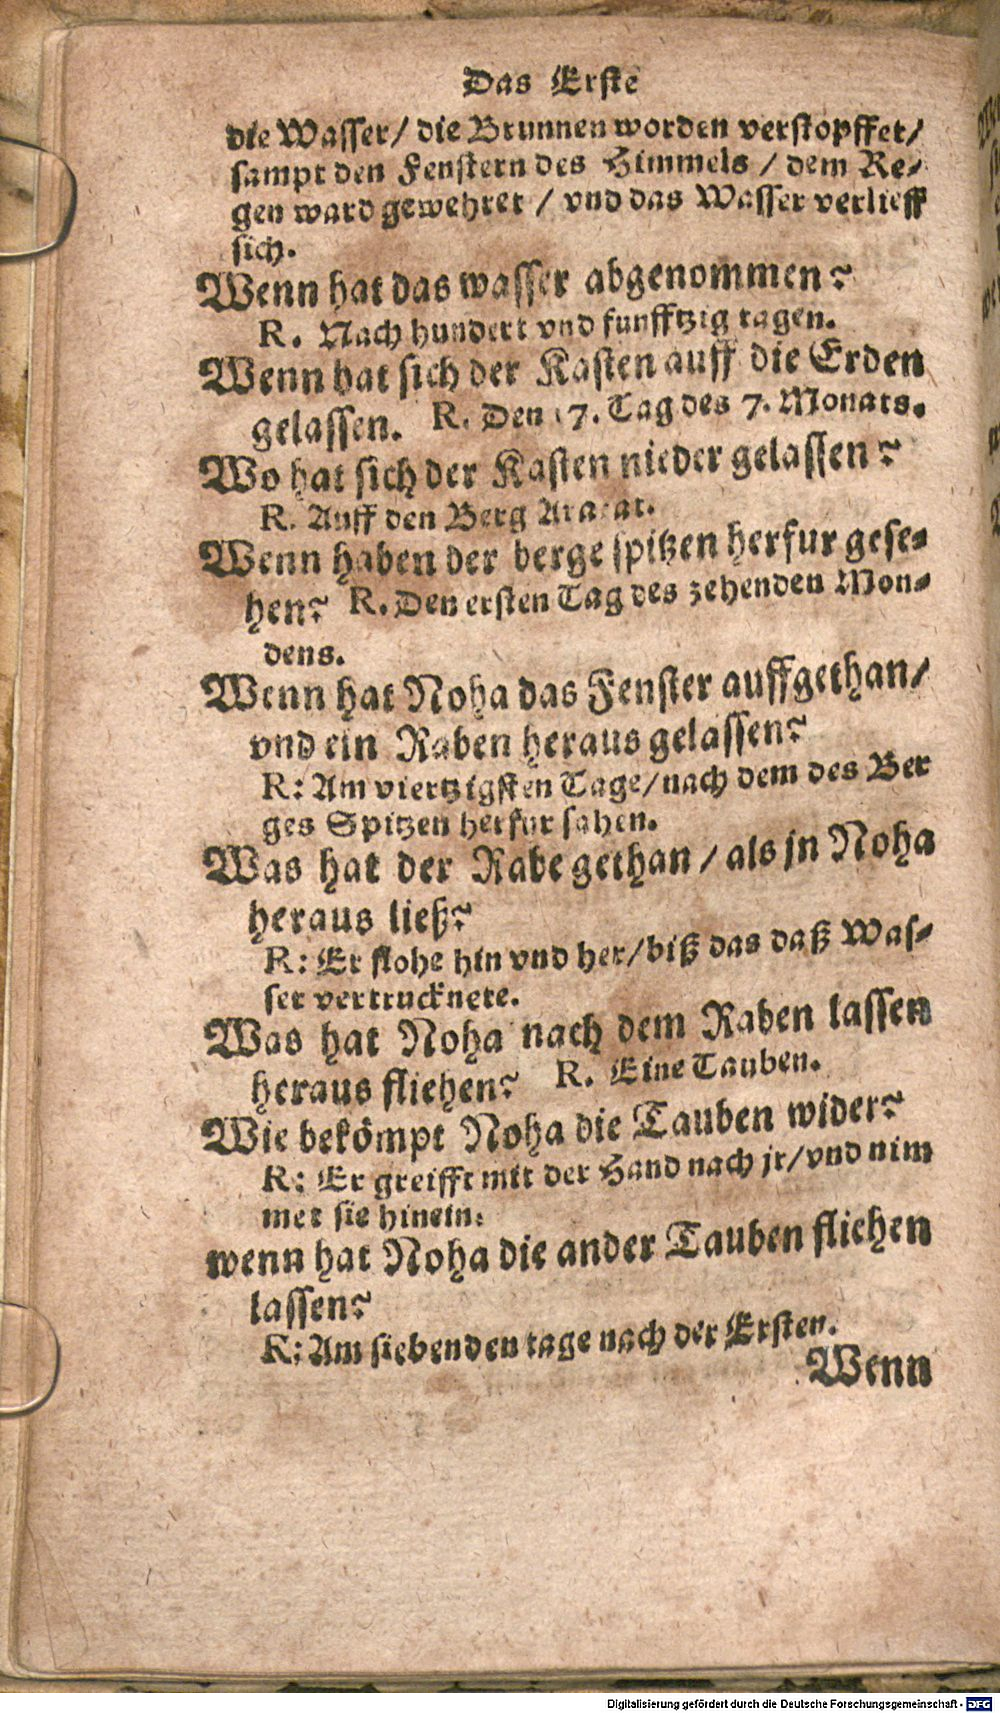 Das Erste
die Wasser/ die Brunnen worden verstopffet/
sampt den Fenstern des Himmels / dem Re-
gen ward gewehret / vnd das Wasser verlieff
sich.
Wenn hat das wasser abgenommen?
R. Nach hundert vnd funfftzig tagen.
Wenn hat sich der Kasten auff die Erden
gelassen. R. Den 17. Tag des 7. Monats.
Wo hat sich der Kasten nieder gelassen?
R. Auff den Berg Ararat.
Wenn haben der berge spitzen herfur gese-
hen? R. Den ersten Tag des zehenden Mon-
dens.
Wenn hat Noha das Fenster auffgethan/
vnd ein Raben heraus gelassen?
R: Am viertzigsten Tage/nach dem des Ber
ges Spitzen herfur sahen.
Was hat der Rabe gethan / als jn Noha
heraus ließ?
R: Er flohe hin vnd her/biß das daß Was-
ser vertrucknete.
Was hat Noha nach dem Raben lassen
heraus fliehen? R. Eine Tauben.
Wie bekömpt Noha die Tauben wider?
R: Er greifft mit der Hand nach jr/vnd nim
met sie hinein.
wenn hat Noha die ander Tauben fliehen
lassen?
R: Am siebenden tage nach der Ersten.
Wenn
Digitalisierung gefördert durch die Deutsche Forschungsgemeinschaft - DFG